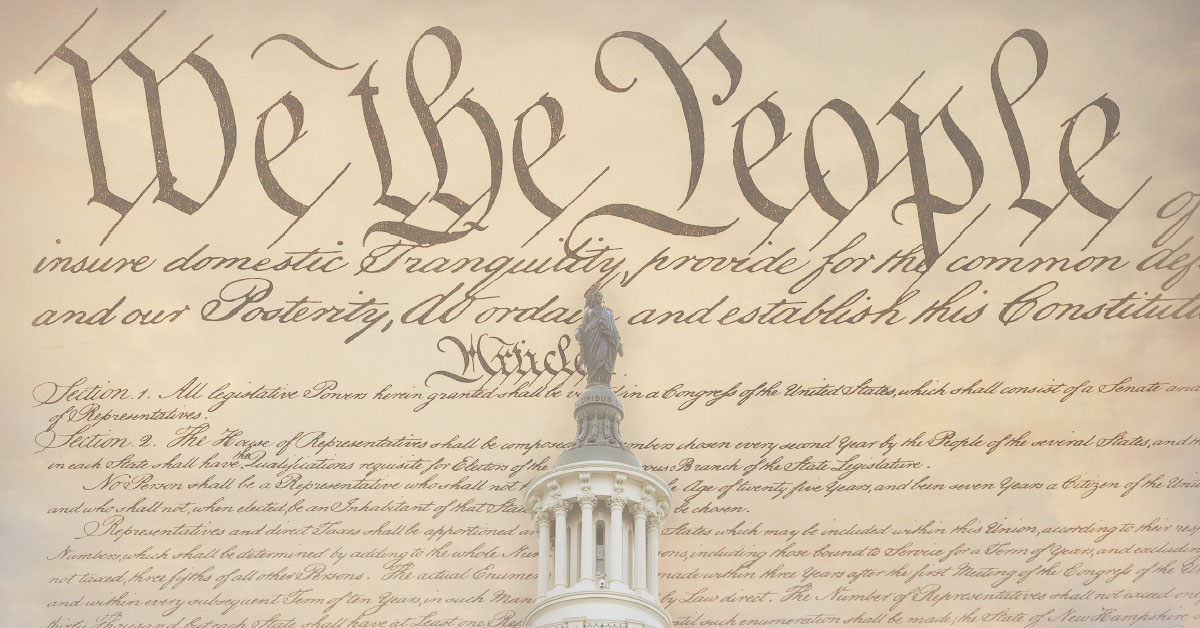 We the People
insure domestic Tranquility, provide for the common def
and our Posterity, do ordain and establish this Constitut
Article
Section. 1. All legislative Powers herein granted shall be in a Congress of the United States, which shall consist of a Senate and
of Representatives.
Section. 2. The House of Representatives shall be composed mbers chosen every second Year by the People of the several States, and
in each State shall have the Qualifications requisite for Electors of the rous Branch of the State Legislature.
No Person shall be a Representative who shall not Age of twenty five Years, and been seven Years a Citizen of the Uni
and who shall not, when elected, be an Inhabitant of that Stat be chosen.
URIBUS
Representatives and direct Taxes shall be apportioned States which may be included within this Union, according to their resp
Numbers, which shall be determined by adding to the whole Num ons, including those bound to Service for a Term of Years, and excludin
not taxed, three fifths of all other Persons. The actual Enumer made within three Years after the first Meeting of the Congress of the
and within every subsequent Term of ten Years, in such Mann by Law direct. The Number of Representatives shall not exceed one
thirty Thousand, but each State shall have at Least one Rep such enumeration shall be made, the State of New Hampshire